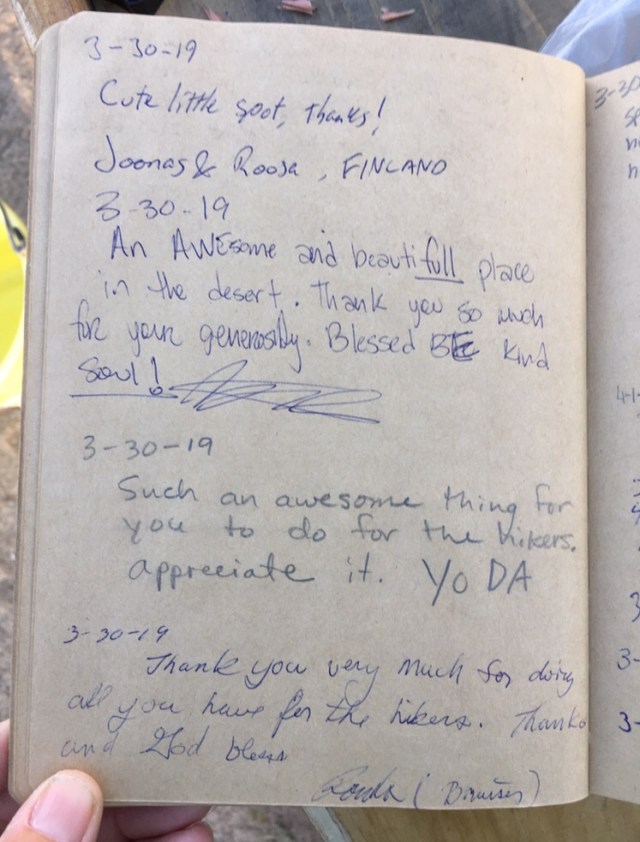 3-30-19
Cute little spot, Thanks!
Joonas & Roosa, FINLAND
3-30-19
An AWEsome and beautifull place
in the desert. Thank you so much
for your generosity. Blessed BE kind
Soul!
3-30-19
Such an awesome thing for
you to do for the hikers.
appreciate it. YoDA
3-30-19
Thank you very much for doing
all you have for the hikers. Thanks
and God bless
(Bruises)
3-30
4-1-
3
3-
3-